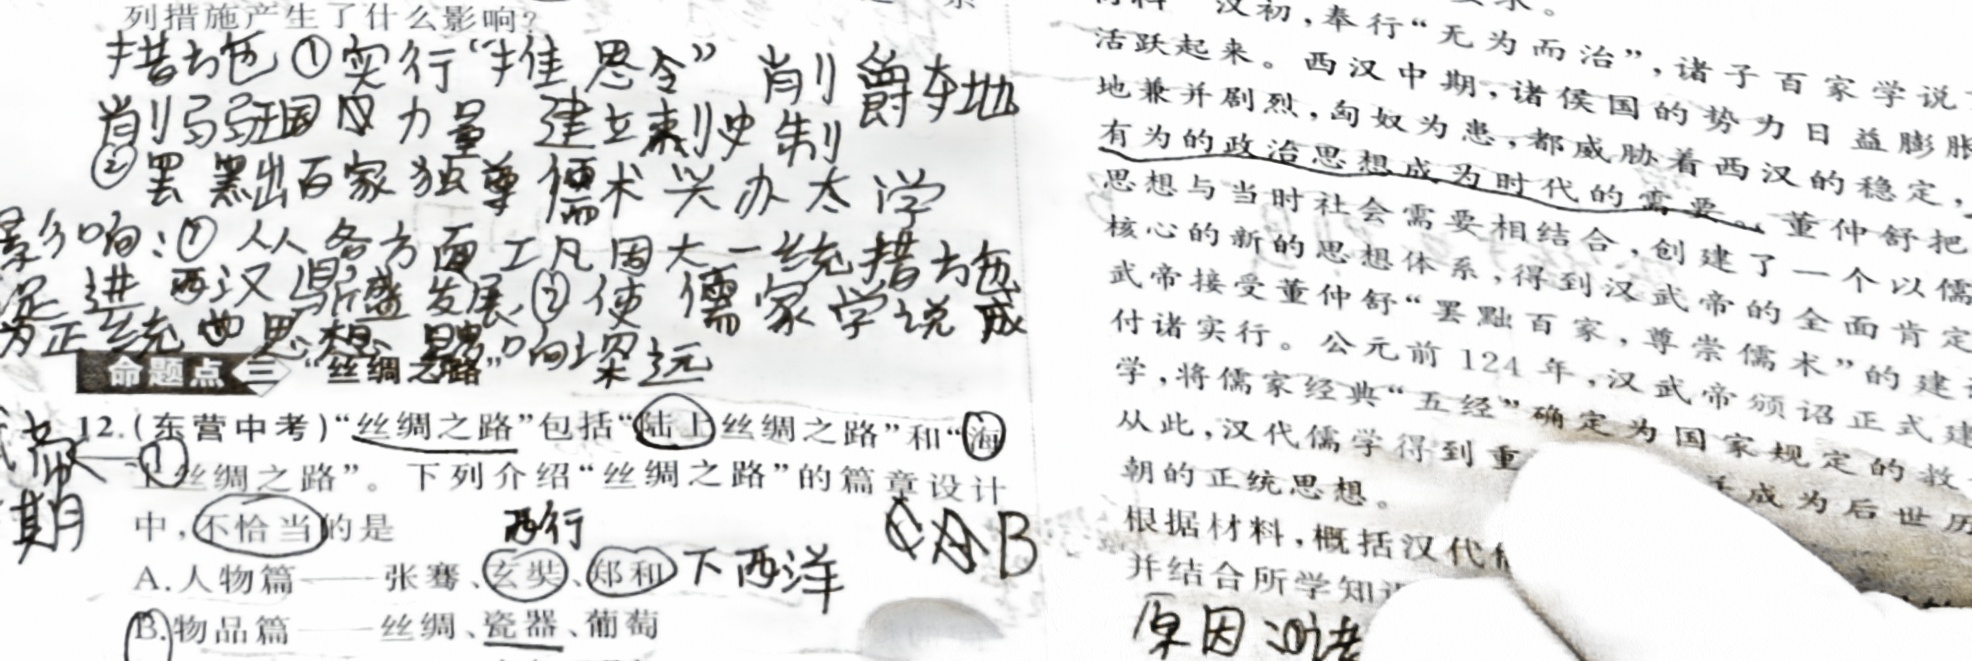 列措施产生了什么影响?
措施①实行“推恩令” 削爵夺地
削弱王国 力量 建立刺史制
②罢黜百家独尊儒术兴办太学
影响:①从各方面工凡固大一统措施
促进西汉鼎盛发展②使儒家学说成
为正统 思想 影响深远
命题点三 “丝绸之路”
12.(东营中考)“丝绸之路”包括“陆上丝绸之路”和“海
上丝绸之路”。下列介绍“丝绸之路”的篇章设计
中,不恰当的是
武帝
期
西行
B
A.人物篇——张骞、玄奘、郑和 下西洋
B.物品篇——丝绸、瓷器、葡萄
汉初,奉行“无为而治”,诸子百家学说
活跃起来。西汉中期,诸侯国的势力日益膨胀
地兼并剧烈,匈奴为患,都威胁着西汉的稳定,
有为的政治思想成为时代的需要。董仲舒把
思想与当时社会需要相结合,创建了一个以儒
核心的新的思想体系,得到汉武帝的全面肯定
武帝接受董仲舒“罢黜百家,尊崇儒术”的建
付诸实行。公元前124年,汉武帝颁诏正式建
学,将儒家经典“五经”确定为国家规定的教
从此,汉代儒学得到重 成为后世历
朝的正统思想。
根据材料,概括汉代
并结合所学知
原因